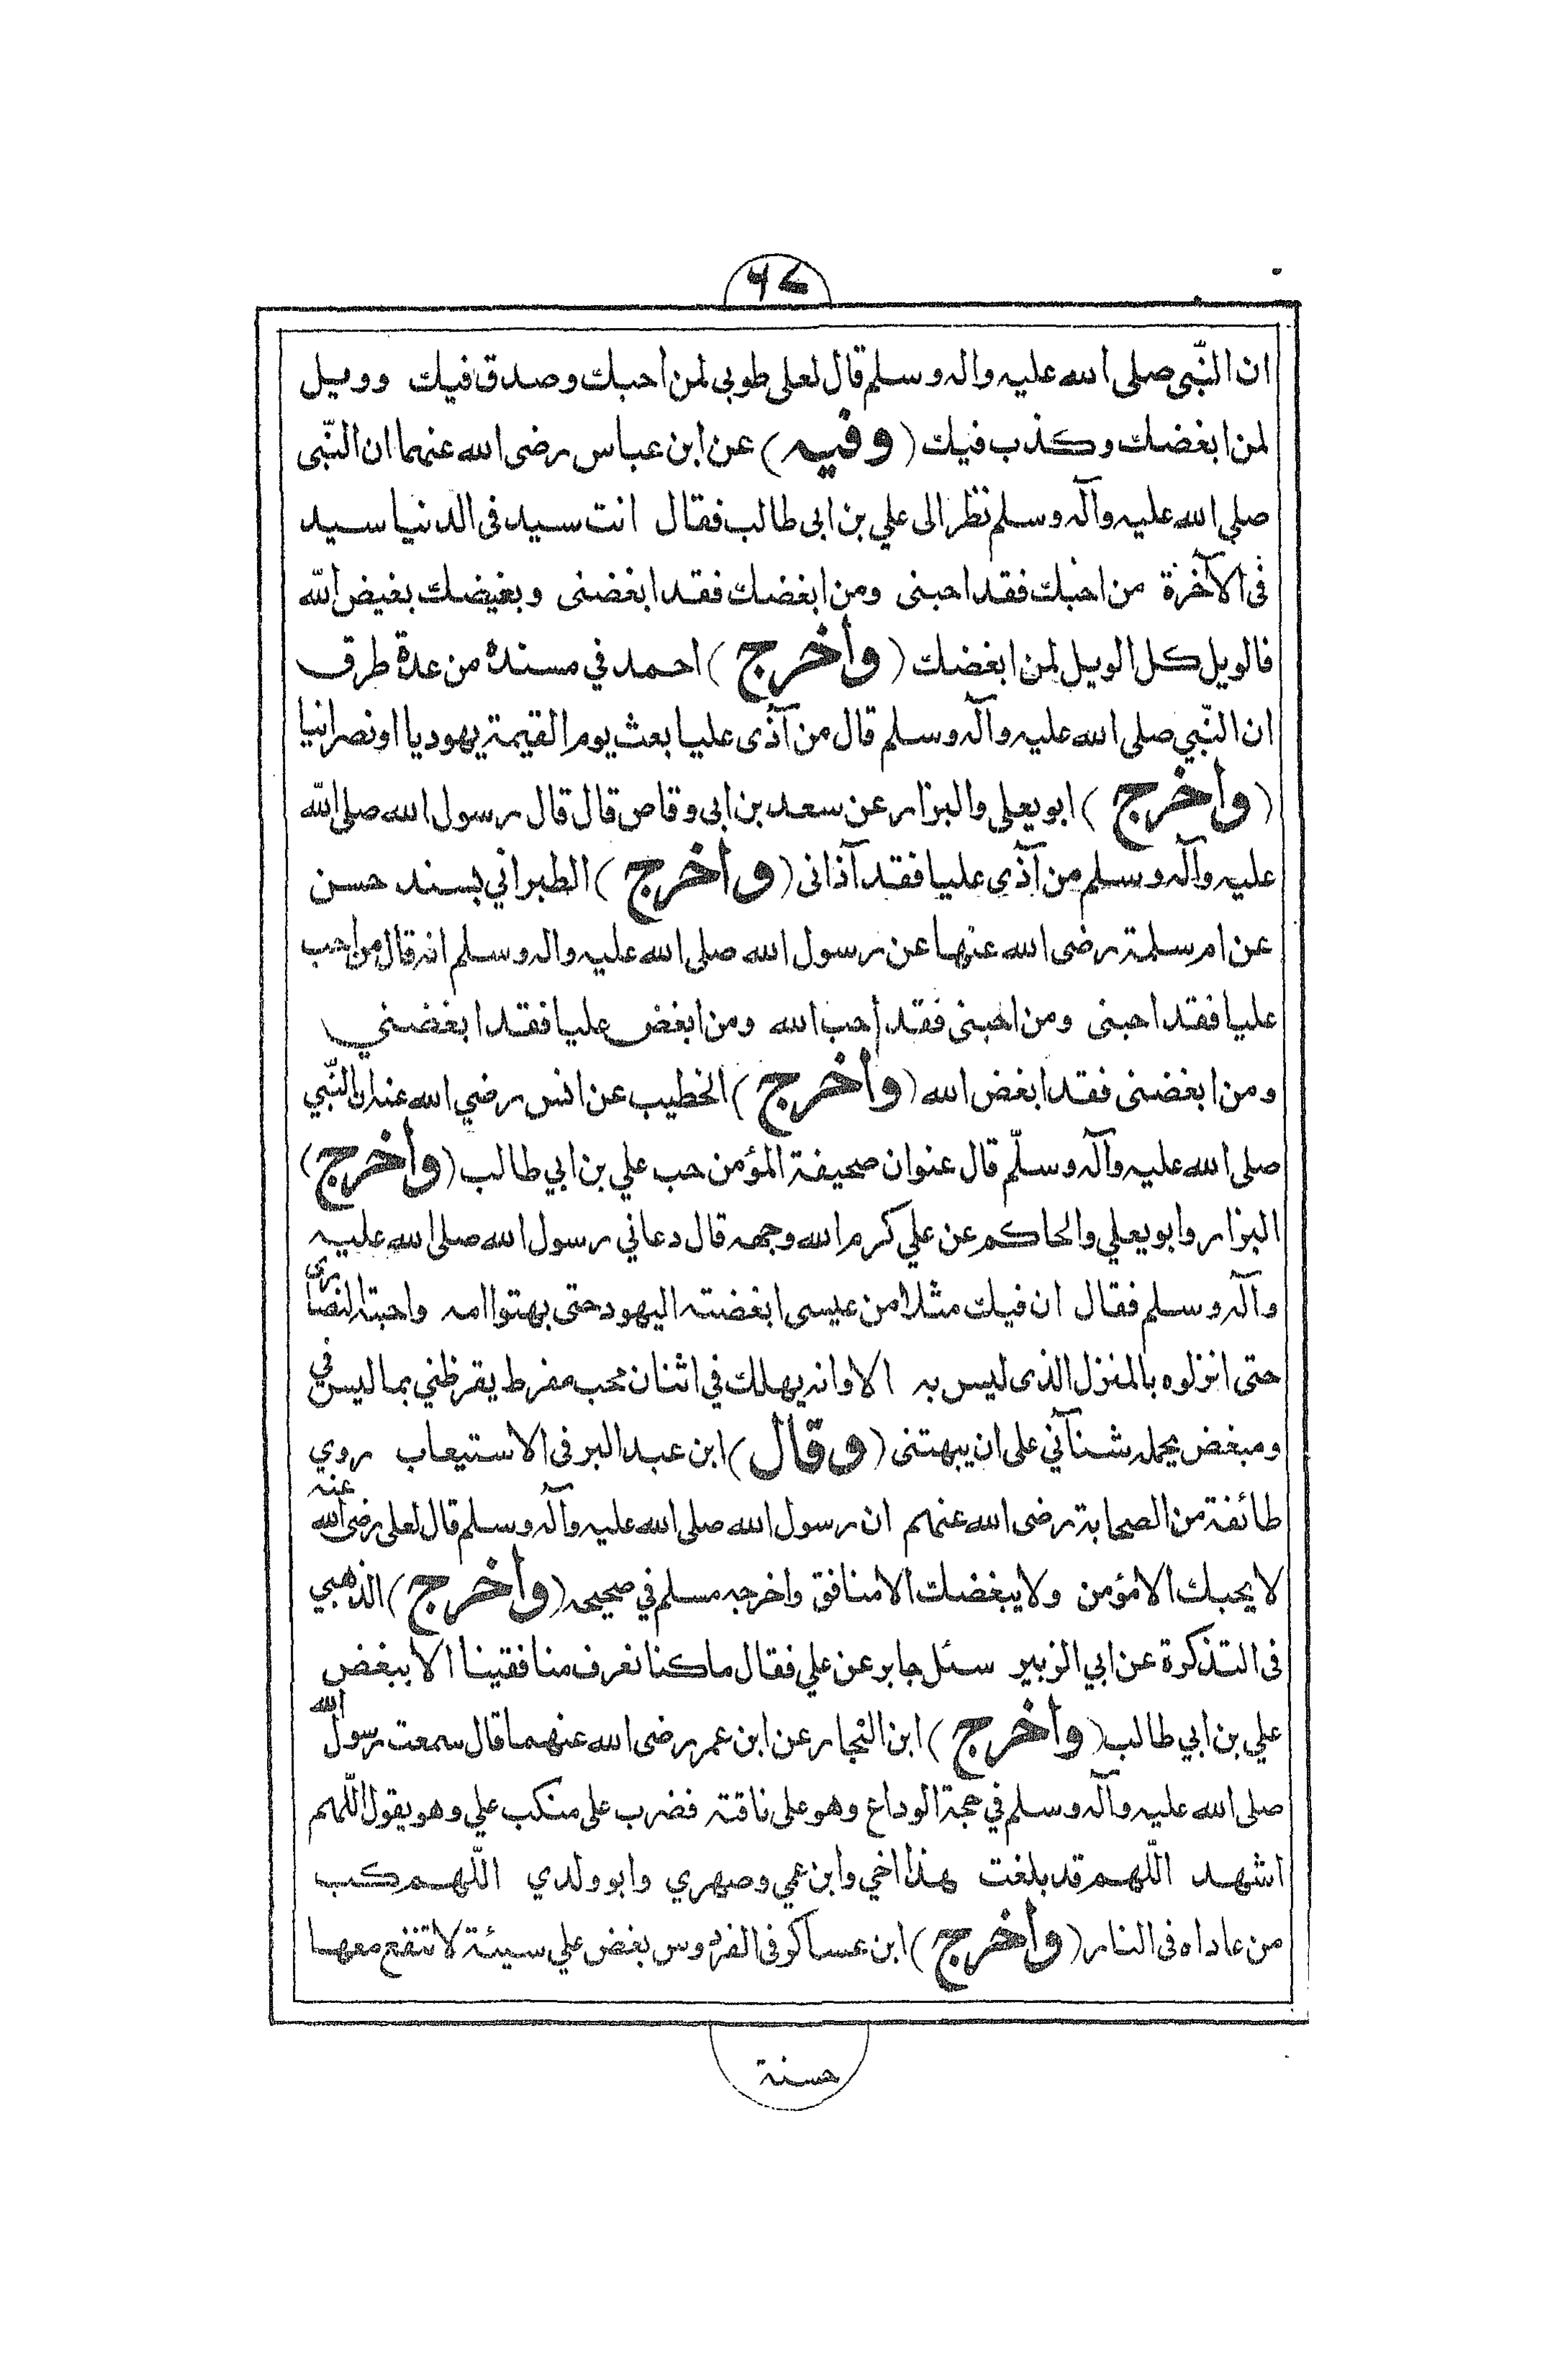 ٦٤
ان النّبى صلى الله عليه واله وسلم قال لعلى طوبى لمن احبك وصدق فيك وويل
لمن ابغضك وكذب فيك (وفيه) عن ابن عباس رضى الله عنهما ان النّبى
صلى الله عليه وآله وسلم نظر الى علي بن ابى طالب فقال انت سيد فى الدنيا سيد
فى الآخرة من احبك فقد احبنى ومن ابغضك فقد ابغضنى وبغيضك بغيض الله
فالويل كل الويل لمن ابغضك (وأخرج) احمد في مسنده من عدة طرق
ان النّبي صلى الله عليه وآله وسلم قال من آذى عليا بعث يوم القيمة يهوديا اونصرانيا
(وأخرج) ابويعلى والبزار عن سعد بن ابى وقاص قال قال رسول الله صلى الله
عليه وآله وسلم من آذى عليا فقد آذانى (وأخرج) الطبراني بسند حسن
عن ام سلمة رضى الله عنها عن رسول الله صلى الله عليه واله وسلم انه قال من احب
عليا فقد احبنى ومن احبنى فقد أحب الله ومن ابغض عليا فقد ابغضني
ومن ابغضنى فقد ابغض الله (وأخرج) الخطيب عن انس رضي الله عنه ان النّبي
صلى الله عليه وآله وسلّم قال عنوان صحيفة المؤمن حب علي بن ابي طالب (وأخرج)
البزار وابويعلي والحاكم عن علي كرم الله وجهه قال دعاني رسول الله صلى الله عليه
وآله وسلم فقال ان فيك مثلا من عيسى ابغضته اليهود حتى بهتوا امه واحبته النصارى
حتى انزلوه بالمنزل الذى ليس به الا وانه يهلك في اثنان محب مفرط يقرظني بما ليس في
ومبغض يحمله شنآني على ان يبهتنى (وقال) ابن عبد البر فى الاستيعاب روي
طائفة من الصحابة رضى الله عنهم ان رسول الله صلى الله عليه وآله وسلم قال لعلى رضى الله عنه
لا يحبك الا مؤمن ولا يبغضك الا منافق واخرجه مسلم في صحيحه (وأخرج) الذهبي
فى التذكرة عن ابي الزبير سئل جابر عن علي فقال ما كنا نعرف منافقينا الا ببغض
علي بن ابي طالب (وأخرج) ابن النجار عن ابن عمر رضى الله عنهما قال سمعت رسول الله
صلى الله عليه وآله وسلم في حجة الوداع وهو على ناقته فضرب على منكب علي وهو يقول اللّهم
اشهد اللّهم قد بلغت هذا اخي وابن عمي وصهري وابو ولدي اللّهم كب
من عاداه فى النار (وأخرج) ابن عساكر فى الفردوس بغض علي سيئة لا تنفع معها
حسنة